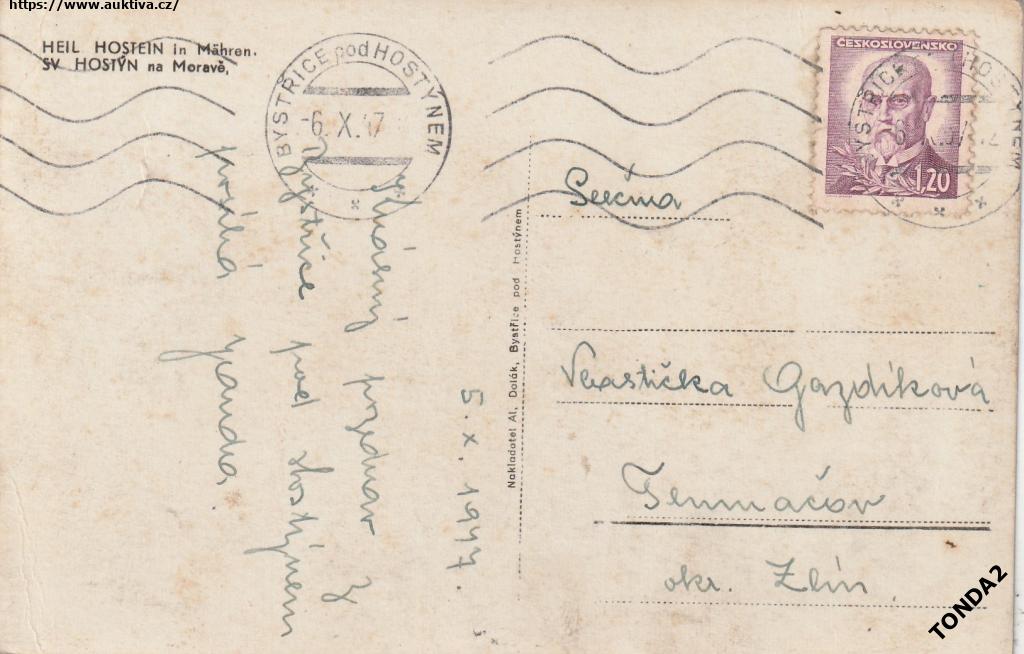 https://www.auktiva.cz/
HEIL HOSTEIN in Mähren.
SV HOSTÝN na Moravě,
BYSTŘICE pod HOSTÝNEM
-6. X. 47
ČESKOSLOVENSKO
1,20
BYSTŘICE HOSTÝNEM
Slečna
Vlastička Gazdíková
Tlumačov
okr. Zlín
Nakladatel Al. Dolák, Bystřice pod Hostýnem
5. X. 1947.
Krásný pozdrav z
Bystřice pod Hostýnem
posílá
TONDA2